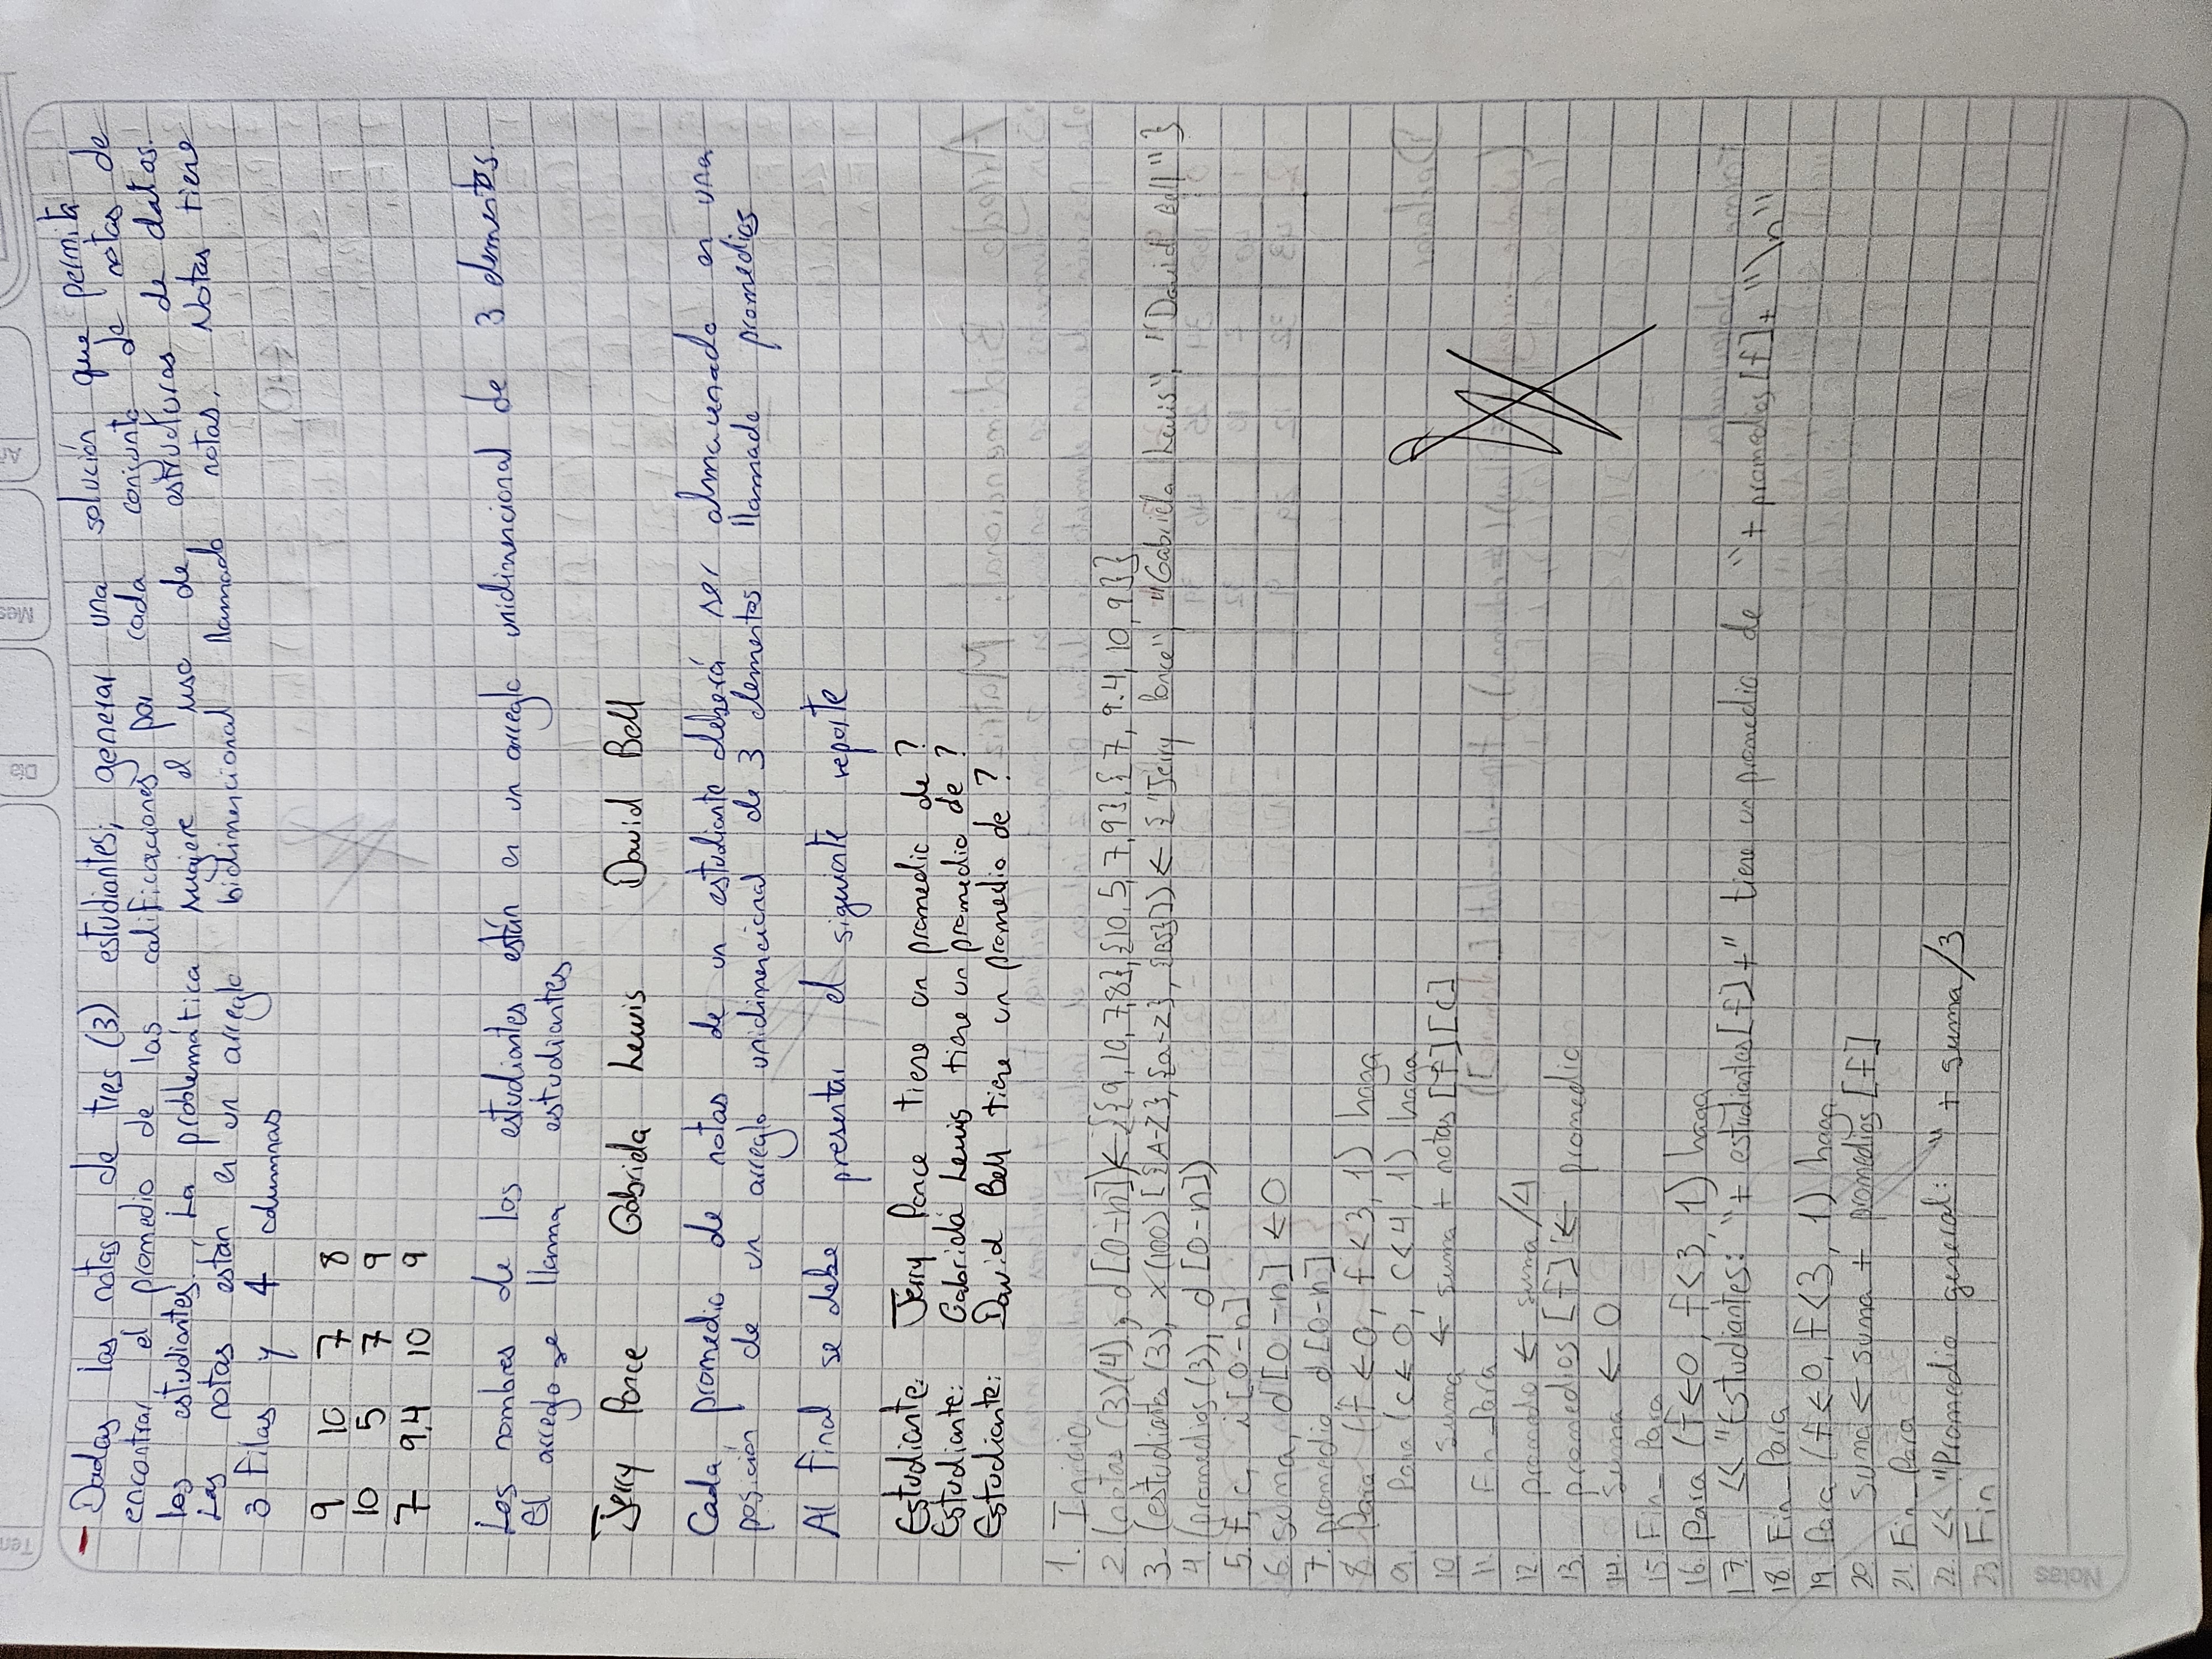 Tem
Día
Mes
Añ
- Dadas las notas de tres (3) estudiantes, generar una solución que permita
encontrar el promedio de las calificaciones por cada conjunto de notas de
los estudiantes. La problemática sugiere el uso de estructuras de datos.
Las notas están en un arreglo bidimencional llamado notas. Notas tiene
3 filas y 4 columnas
9 10 7 8
10 5 7 9
7 9.4 10 9
Los nombres de los estudiantes están en un arreglo unidimencional de 3 elementos.
El arreglo se llama estudiantes
Jerry Ponce Gabriela Lewis David Bell
Cada promedio de notas de un estudiante deberá ser almacenado en una
posición de un arreglo unidimencional de 3 elementos llamado promedios
Al final se debe presentar el siguiente reporte
Estudiante: Jerry Ponce tiene un promedio de ?
Estudiante: Gabriela Lewis tiene un promedio de ?
Estudiante: David Bell tiene un promedio de ?
1. Inicio
2. (notas (3)(4), d[0-n]) ← {{9, 10, 7, 8}, {10, 5, 7, 9}, {7, 9.4, 10, 9}}
3. (estudiantes (3), x(100) [{A-Z}, {a-z}, {BS}]) ← {"Jerry Ponce", "Gabriela Lewis", "David Bell"}
4. (promedios (3), d[0-n])
5. f, c, i[0-n]
6. suma, d[0-n] ← 0
7. promedio, d[0-n]
8. Para (f ← 0, f < 3, 1) haga
9. Para (c ← 0, c < 4, 1) haga
10. suma ← suma + notas [f][c]
11. Fin_Para
12. promedio ← suma /4
13. promedios [f] ← promedio
14. suma ← 0
15. Fin_Para
16. Para (f ← 0, f < 3, 1) haga
17. << "Estudiantes: "+ estudiantes[f] +" tiene un promedio de "+ promedios [f] + "\n"
18. Fin_Para
19. Para (f ← 0, f < 3, 1) haga
20. suma ← suma + promedios [f]
21. Fin_Para
22. << "Promedio general: " + suma /3
23. Fin
Notas